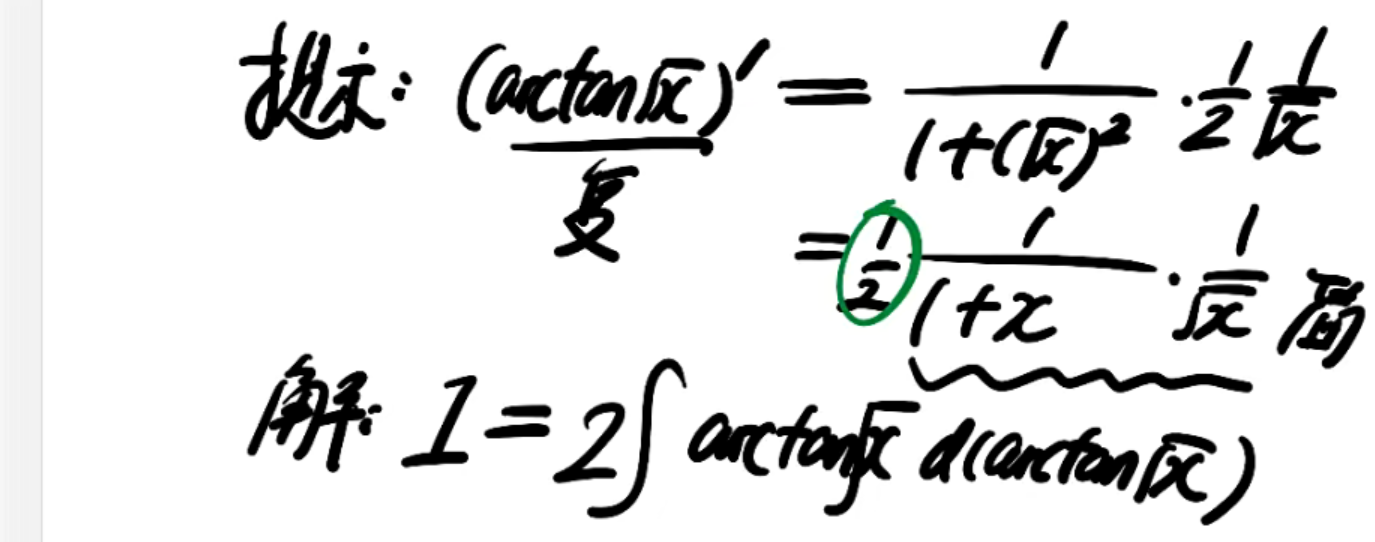 提示: (arctan√x)' = 1/(1+(√x)²) · 1/2 1/√x
复
= 1/2 1/(1+x) · 1/√x 局
解: I = 2∫ arctan√x d(arctan√x)